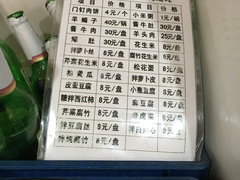 品名 价格 品名 价格
门钉肉饼 4元/个 小米粥 1元/碗
羊蝎子 40元/锅 酱牛肚 30元/盘
酱牛肉 30元/盘 羊头肉 25元/盘
30元/盘 花生米 8元/盘
拌萝卜丝 8元/盘 腐竹花生米 8元/盘
芹菜花生米 8元/盘 松花蛋 8元/盘
拍黄瓜 8元/盘 拌萝卜皮 8元/盘
皮蛋豆腐 8元/盘 小葱豆腐 8元/盘
糖拌西红柿 8元/盘 麻豆腐 8元/盘
芹菜腐竹 8元/盘 老虎菜 8元/盘
拌豆腐丝 8元/盘 8元/盘
8元/盘